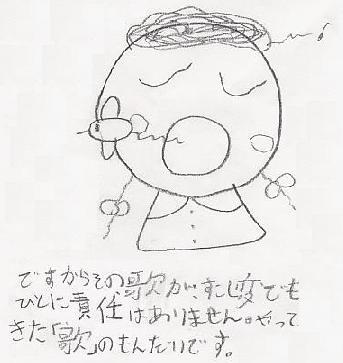 ですからその歌が、すこし変でも
に責任はありません。やって
きた「歌」のもんだいです。